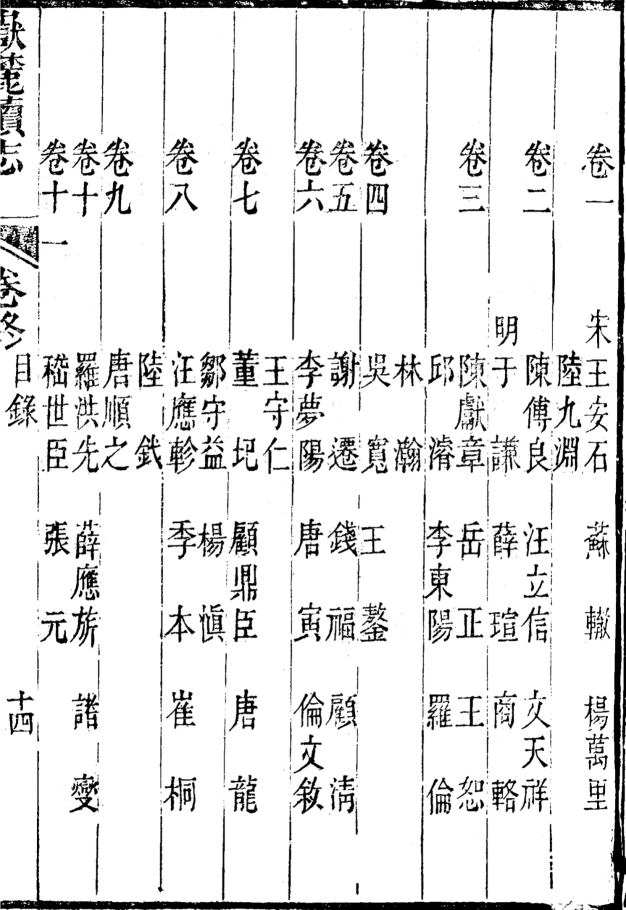 卷一　宋王安石　蘇轍　楊萬里
陸九淵
卷二　陳傅良　汪立信　文天祥
明于謙　薛瑄　商輅
卷三　陳獻章　岳正　王恕
邱濬　李東陽　羅倫
林瀚
卷四　吳寬　王鏊
卷五　謝遷　錢福　顧清
卷六　李夢陽　唐寅　倫文敘
王守仁
卷七　董玘　顧鼎臣　唐龍
鄒守益　楊慎
卷八　汪應軫　季本　崔桐
陸釴
卷九　唐順之
卷十　羅洪先　薛應旂　諸燮
卷十一　嵇世臣　張元
嶽麓續志　卷終　目錄　十四